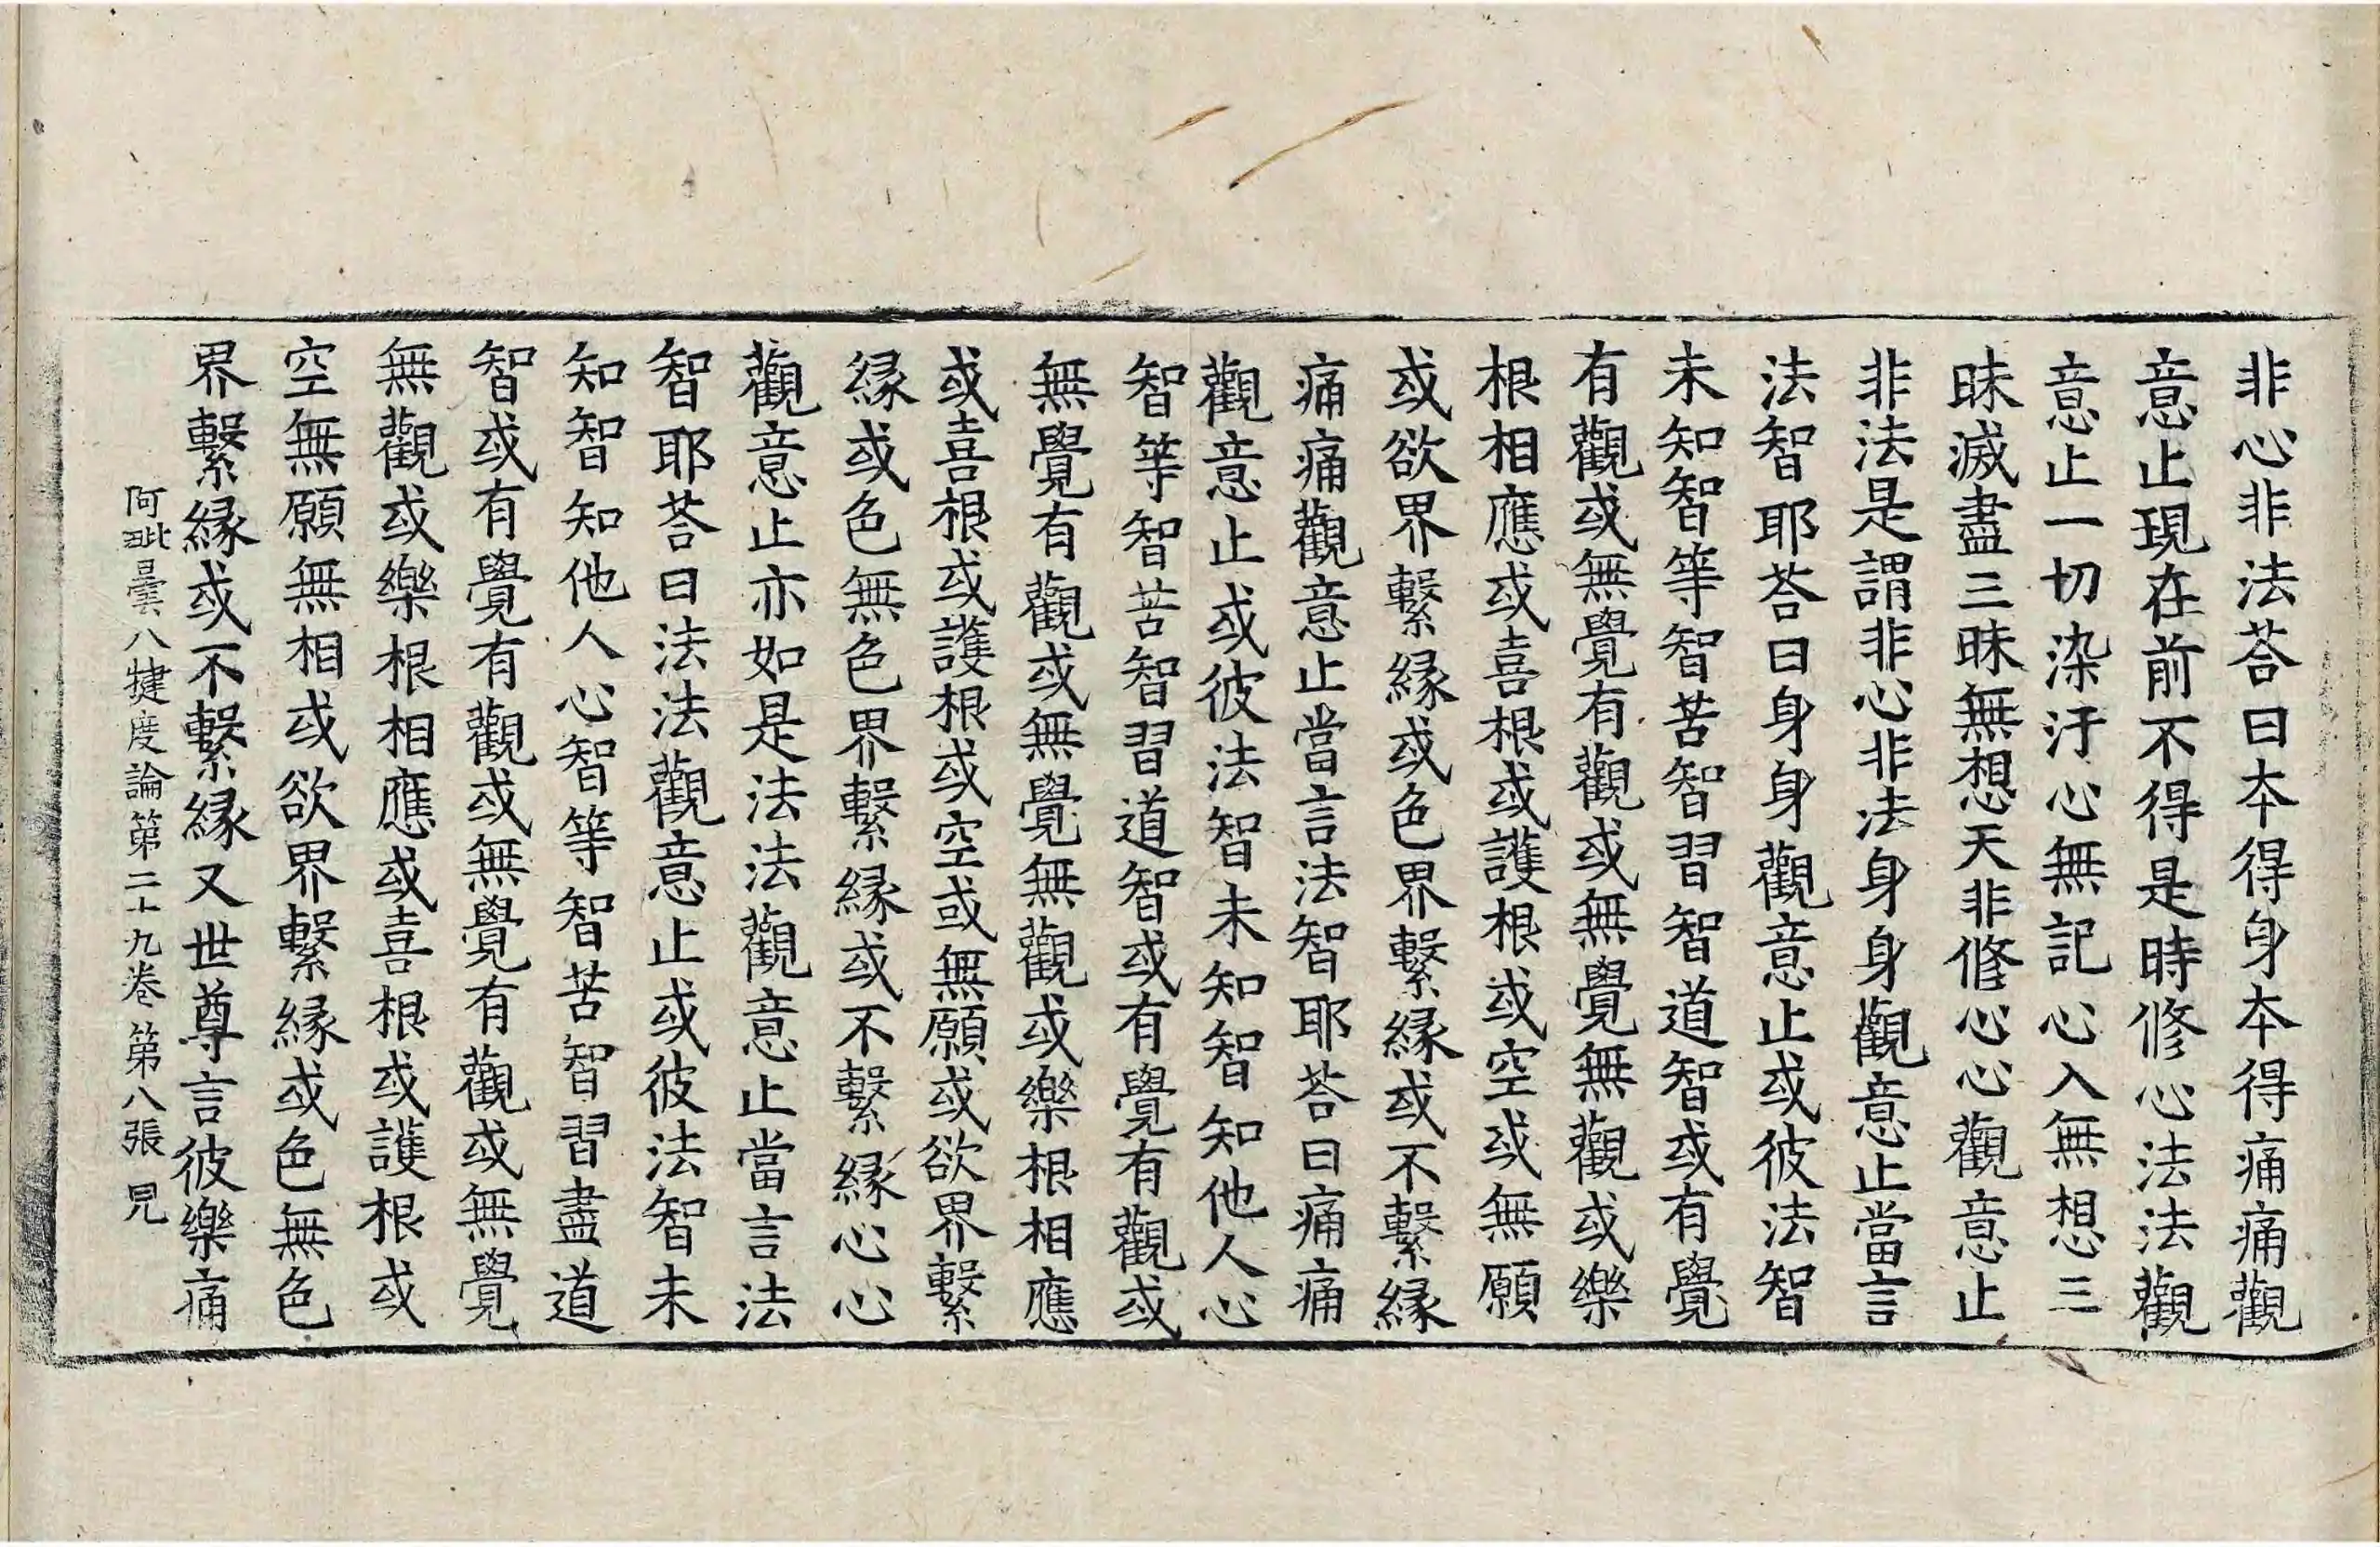 非心非法荅曰本得身本得痛痛觀
意止現在前不得是時修心法法觀
意止一切染汙心無記心入無想三
昧滅盡三昧無想天非修心心觀意止
非法是謂非心非法身身觀意止當言
法智耶荅曰身身觀意止或彼法智
未知智等智苦智習智道智或有覺
有觀或無覺有觀或無覺無觀或樂
根相應或喜根或護根或空或無願
或欲界繫緣或色界繫緣或不繫緣
痛痛觀意止當言法智耶荅曰痛痛
觀意止或彼法智未知智知他人心
智等智苦智習道智或有覺有觀或
無覺有觀或無覺無觀或樂根相應
或喜根或護根或空或無願或欲界繫
緣或色無色界繫緣或不繫緣心心
觀意止亦如是法法觀意止當言法
智耶荅曰法法觀意止或彼法智未
知智知他人心智等智苦智習盡道
智或有覺有觀或無覺有觀或無覺
無觀或樂根相應或喜根或護根或
空無願無相或欲界繫緣或色無色
界繫緣或不繫緣又世尊言彼樂痛
阿毗曇八犍度論第二十九卷 第八張